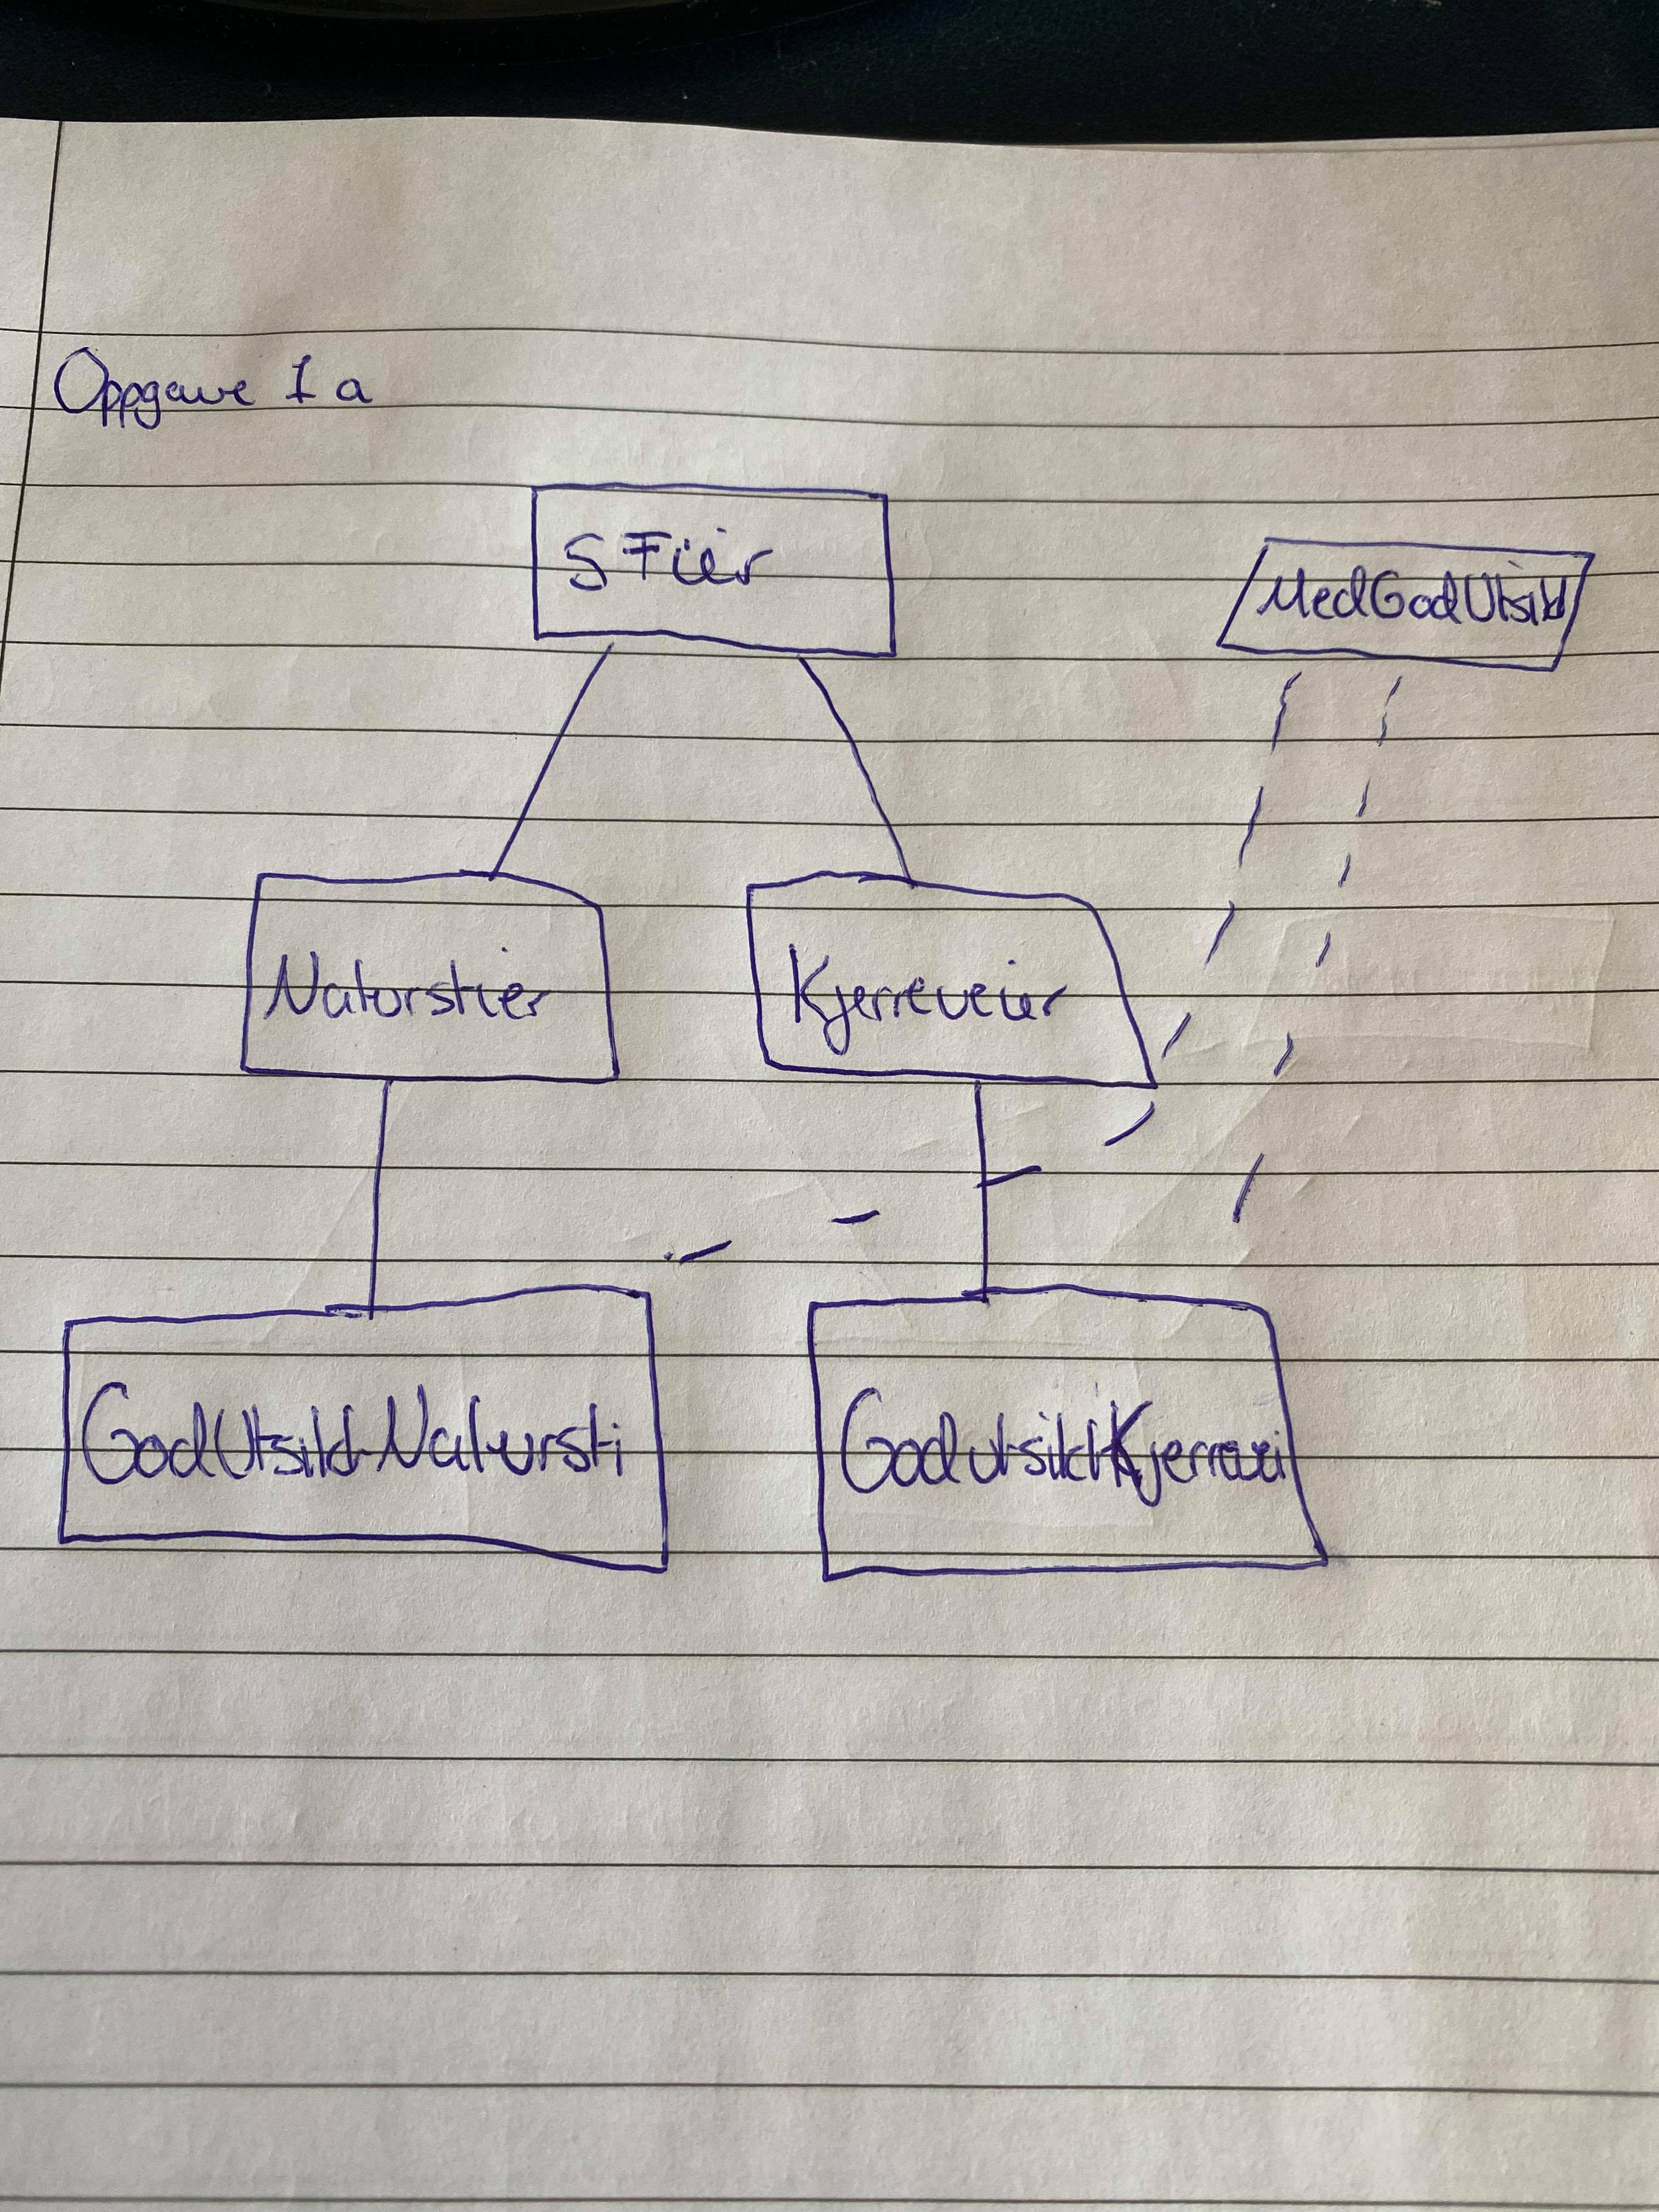 Oppgave 1 a
Stier
MedGodUtsikt
Naturstier
Kjerreveier
GodUtsiktNatursti
GodutsiktKjerrevei